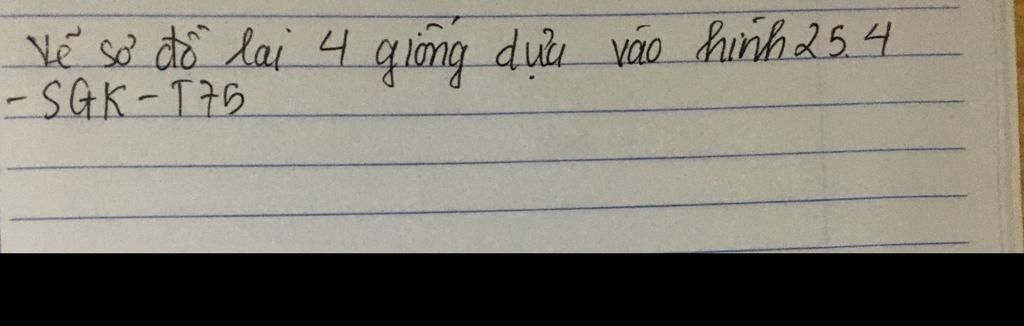 Vẽ sơ đồ lai 4 giống dựa vào hình 25.4
- SGK - T75